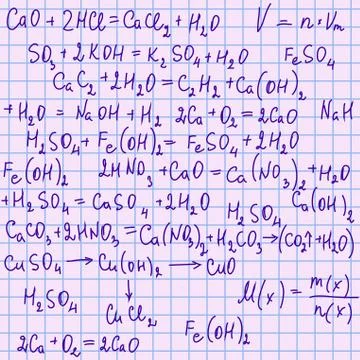 CaO + 2HCl = CaCl₂ + H₂O V = n · Vm
SO₃ + 2KOH = K₂SO₄ + H₂O FeSO₄
CaC₂ + 2H₂O = C₂H₂ + Ca(OH)₂
+ H₂O = NaOH + H₂ 2Ca + O₂ = 2CaO NaH
H₂SO₄ + Fe(OH)₂ = FeSO₄ + 2H₂O
Fe(OH)₂ 2HNO₃ + CaO = Ca(NO₃)₂ + H₂O
+ H₂SO₄ = CaSO₄ + 2H₂O H₂SO₄ Ca(OH)₂
CaCO₃ + 2HNO₃ = Ca(NO₃)₂ + H₂CO₃ → (CO₂↑ + H₂O)
CuSO₄ → Cu(OH)₂ → CuO
↓
H₂SO₄ CuCl₂ M(x) = m(x)/n(x)
2Ca + O₂ = 2CaO Fe(OH)₂